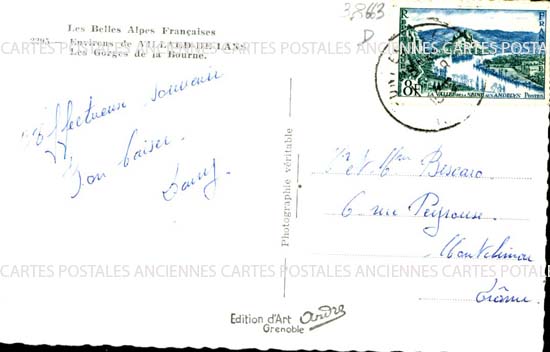 Les Belles Alpes Françaises
2295 Environs de VILLARD-DE-LANS
Les Gorges de la Bourne.
Affectueux souvenir
Bon baiser.
3,863
D
FRANÇAISE
8F
LA VALLÉE DE LA SEINE AUX ANDELYS POSTES
Photographie véritable
Mr et Mme Bescaro
6 rue Peyrouse
Montélimar
Drôme
CARTES POSTALES ANCIENNES CARTES POSTALES ANCIENNES CARTES POSTALES ANCIENNES
Edition d'Art André
Grenoble